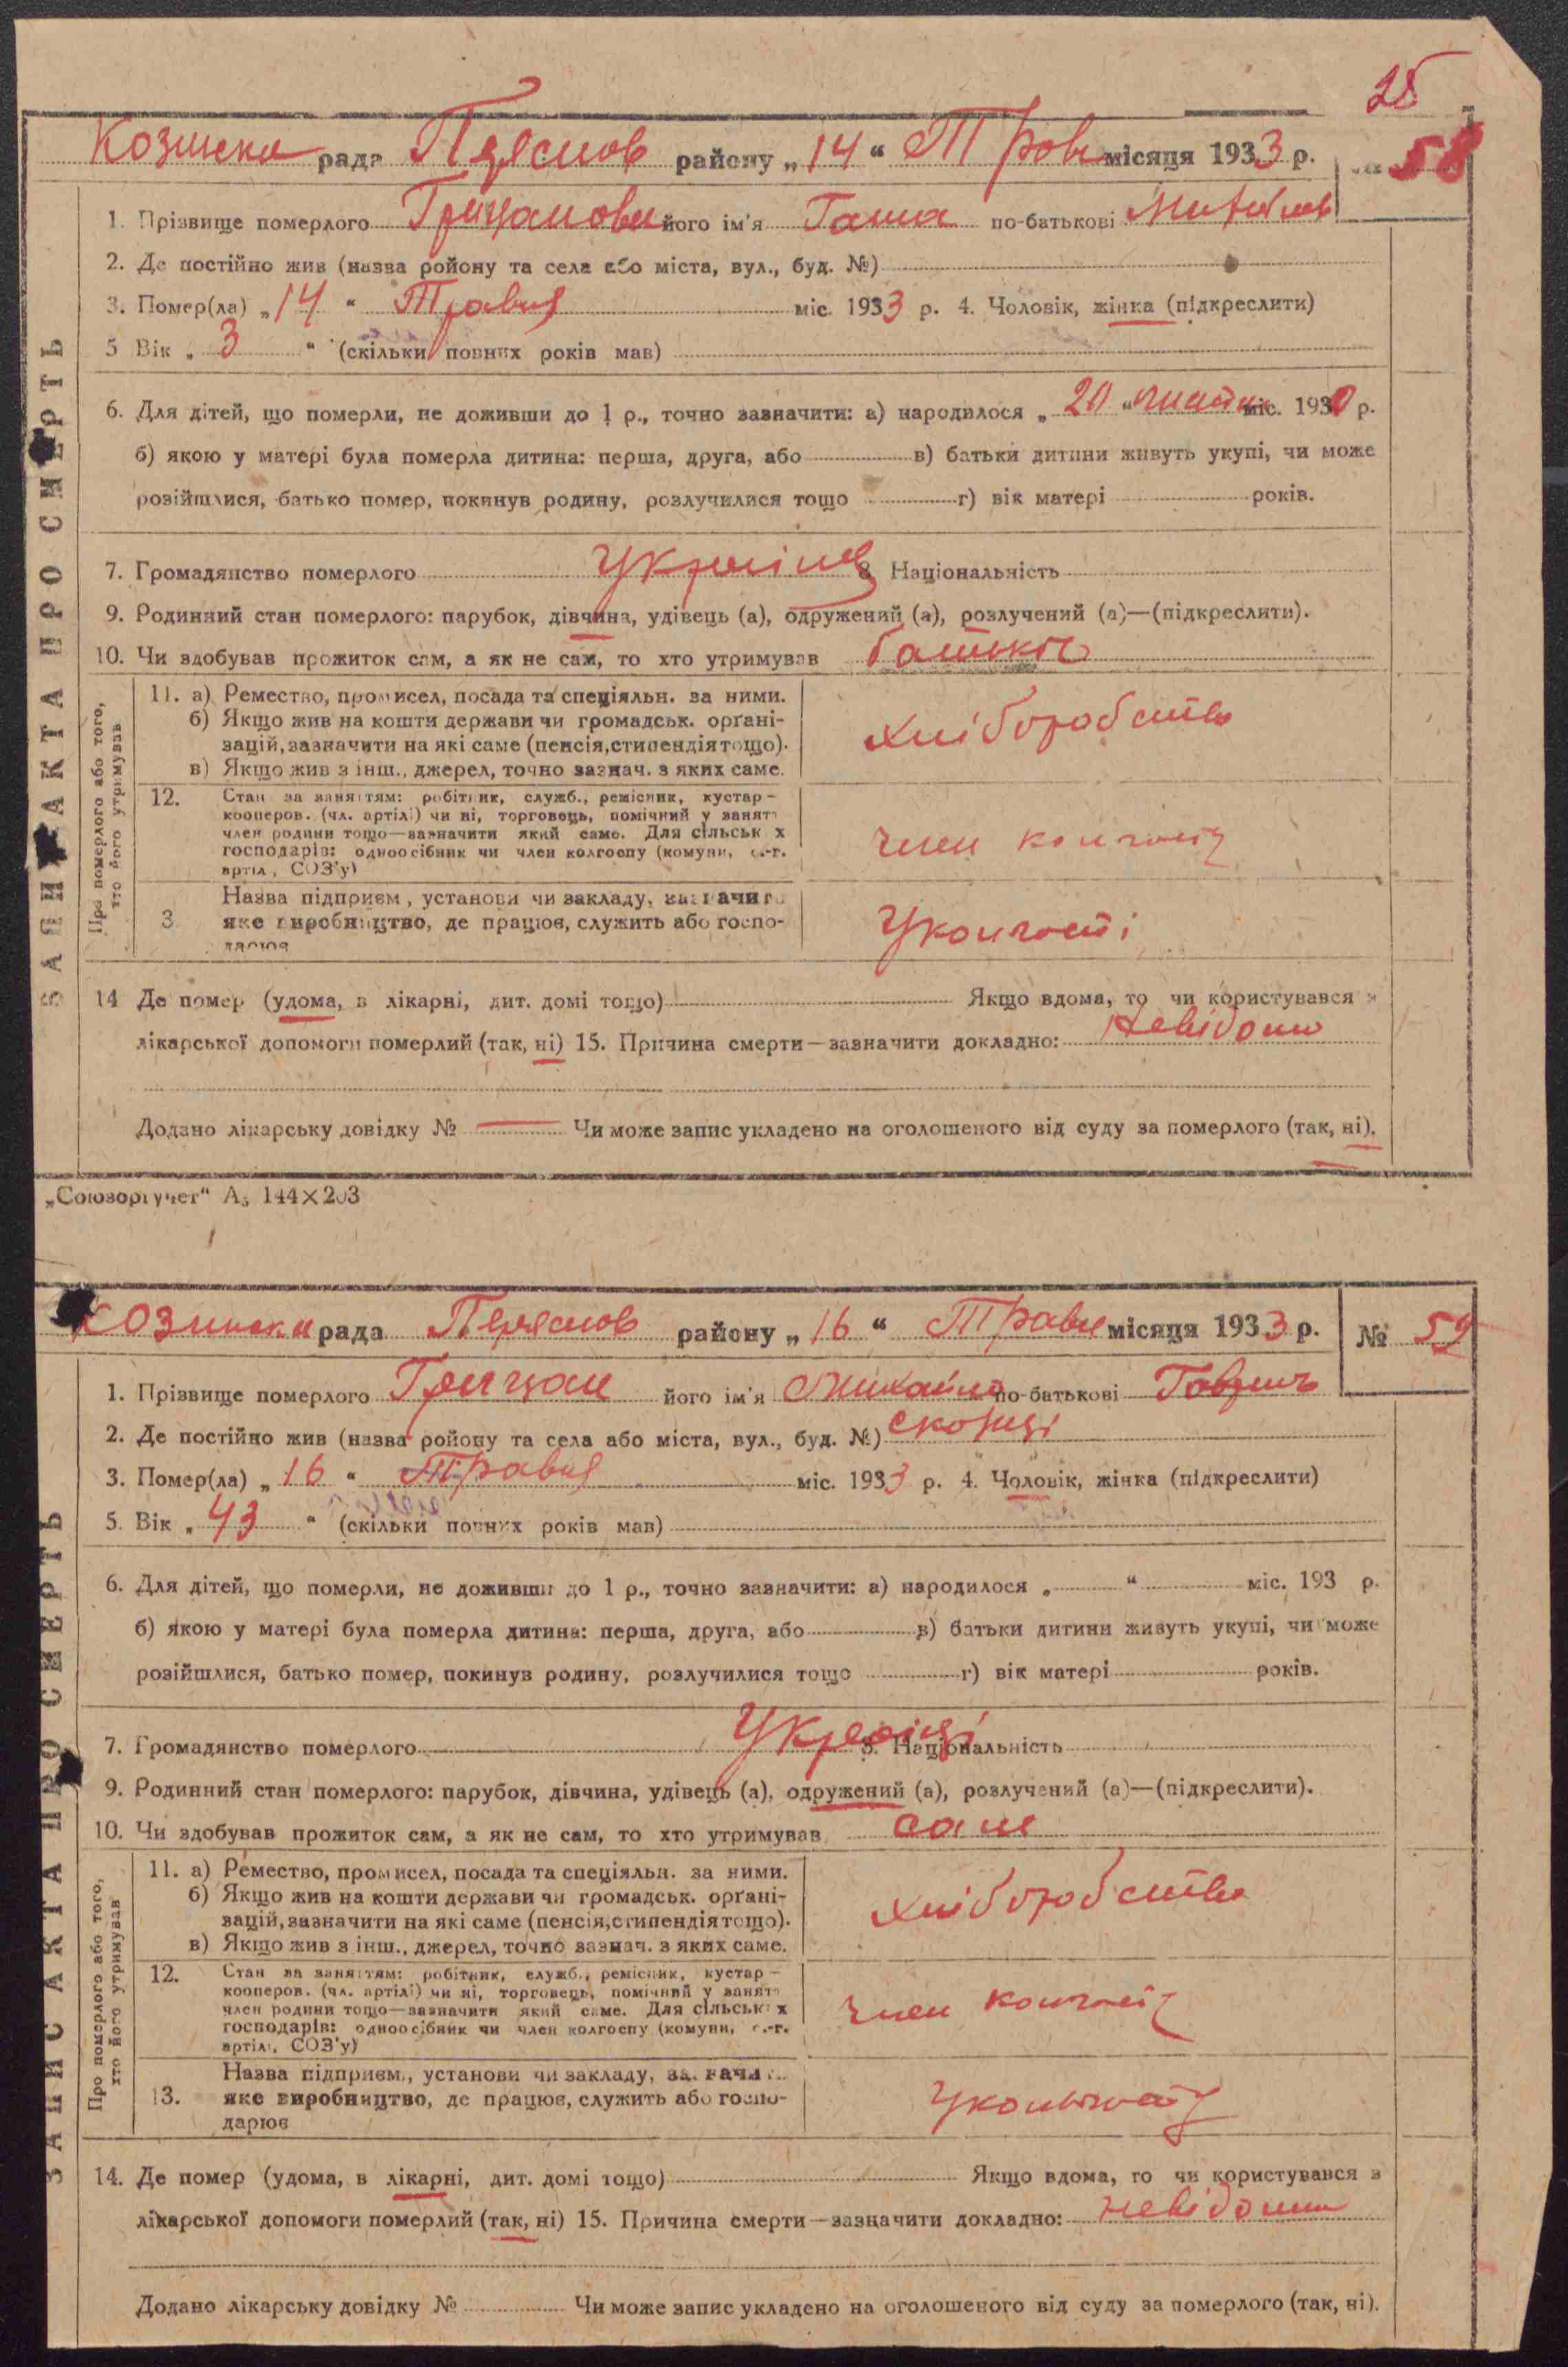 25
Козинска рада Переяслов району „14“ Трав місяця 1933 р. № 58
1. Прізвище померлого Грицанови його ім'я Ганна по-батькові
2. Де постійно жив (назва ройону та села або міста, вул., буд. №)
3. Помер(ла) „14“ Травня міс. 1933 р. 4. Чоловік, жінка (підкреслити)
5 Вік „3“ (скільки повних років мав)
6. Для дітей, що померли, не доживши до 1 р., точно зазначити: а) народилося „20“ міс. 1930 р.
б) якою у матері була померла дитина: перша, друга, або в) батьки дитини живуть укупі, чи може
розійшлися, батько помер, покинув родину, розлучилися тощо г) вік матері років.
7. Громадянство померлого 8. Національність
9. Родинний стан померлого: парубок, дівчина, удівець (а), одружений (а), розлучений (а)—(підкреслити).
10. Чи здобував прожиток сам, а як не сам, то хто утримував батько
ЗАПИС АКТА ПРО СМЕРТЬ
Про померлого або того,
хто його утримував
11. а) Ремество, промисел, посада та спеціяльн. за ними.
б) Якщо жив на кошти держави чи громадськ. орґані-
зацій, зазначити на які саме (пенсія, стипендія тощо).
в) Якщо жив з інш., джерел, точно зазнач. з яких саме.
хліборобство
12. Стан за заняттям: робітник, служб., ремісник, кустар—
кооперов. (чл. артілі) чи ні, торговець, помічний у занятт
член родини тощо—зазначити який саме. Для сільськ х
господарів: одноосібник чи член колгоспу (комуни, с.-г.
артіл, СОЗ'у)
член
3 Назва підприєм, установи чи закладу, зазначити
яке виробництво, де працює, служить або госпо-
дарює
14 Де помер (удома, в лікарні, дит. домі тощо) Якщо вдома, то чи користувався з
лікарської допомоги померлий (так, ні) 15. Причина смерти—зазначити докладно: Невідомо
Додано лікарську довідку № — Чи може запис укладено на оголошеного від суду за померлого (так, ні).
„Союзоргучет“ А₅ 144×203
Козинска рада Переяслов району „16“ Травн місяця 1933 р. № 59
1. Прізвище померлого Грицан його ім'я Михайло по-батькові Гаврил
2. Де постійно жив (назва ройону та села або міста, вул., буд. №)
3. Помер(ла) „16“ Травня міс. 1933 р. 4. Чоловік, жінка (підкреслити)
5. Вік „43“ (скільки повних років мав)
6. Для дітей, що померли, не доживши до 1 р., точно зазначити: а) народилося „ “ міс. 193 р.
б) якою у матері була померла дитина: перша, друга, або в) батьки дитини живуть укупі, чи може
розійшлися, батько помер, покинув родину, розлучилися тощо г) вік матері років.
7. Громадянство померлого 8. Національність
9. Родинний стан померлого: парубок, дівчина, удівець (а), одружений (а), розлучений (а)—(підкреслити).
10. Чи здобував прожиток сам, а як не сам, то хто утримував сам
ЗАПИС АКТА ПРО СМЕРТЬ
Про померлого або того,
хто його утримував
11. а) Ремество, промисел, посада та спеціяльн. за ними.
б) Якщо жив на кошти держави чи громадськ. орґані-
зацій, зазначити на які саме (пенсія, стипендія тощо).
в) Якщо жив з інш., джерел, точно зазнач. з яких саме.
хліборобство
12. Стан за заняттям: робітник, служб., ремісник, кустар—
кооперов. (чл. артілі) чи ні, торговець, помічний у занятт
член родини тощо—зазначити який саме. Для сільськ х
господарів: одноосібник чи член колгоспу (комуни, с.-г.
артіл, СОЗ'у)
член
13. Назва підприєм., установи чи закладу, зазначити
яке виробництво, де працює, служить або госпо-
дарює
14. Де помер (удома, в лікарні, дит. домі тощо) Якщо вдома, то чи користувався з
лікарської допомоги померлий (так, ні) 15. Причина смерти—зазначити докладно: невідомо
Додано лікарську довідку № Чи може запис укладено на оголошеного від суду за померлого (так, ні).